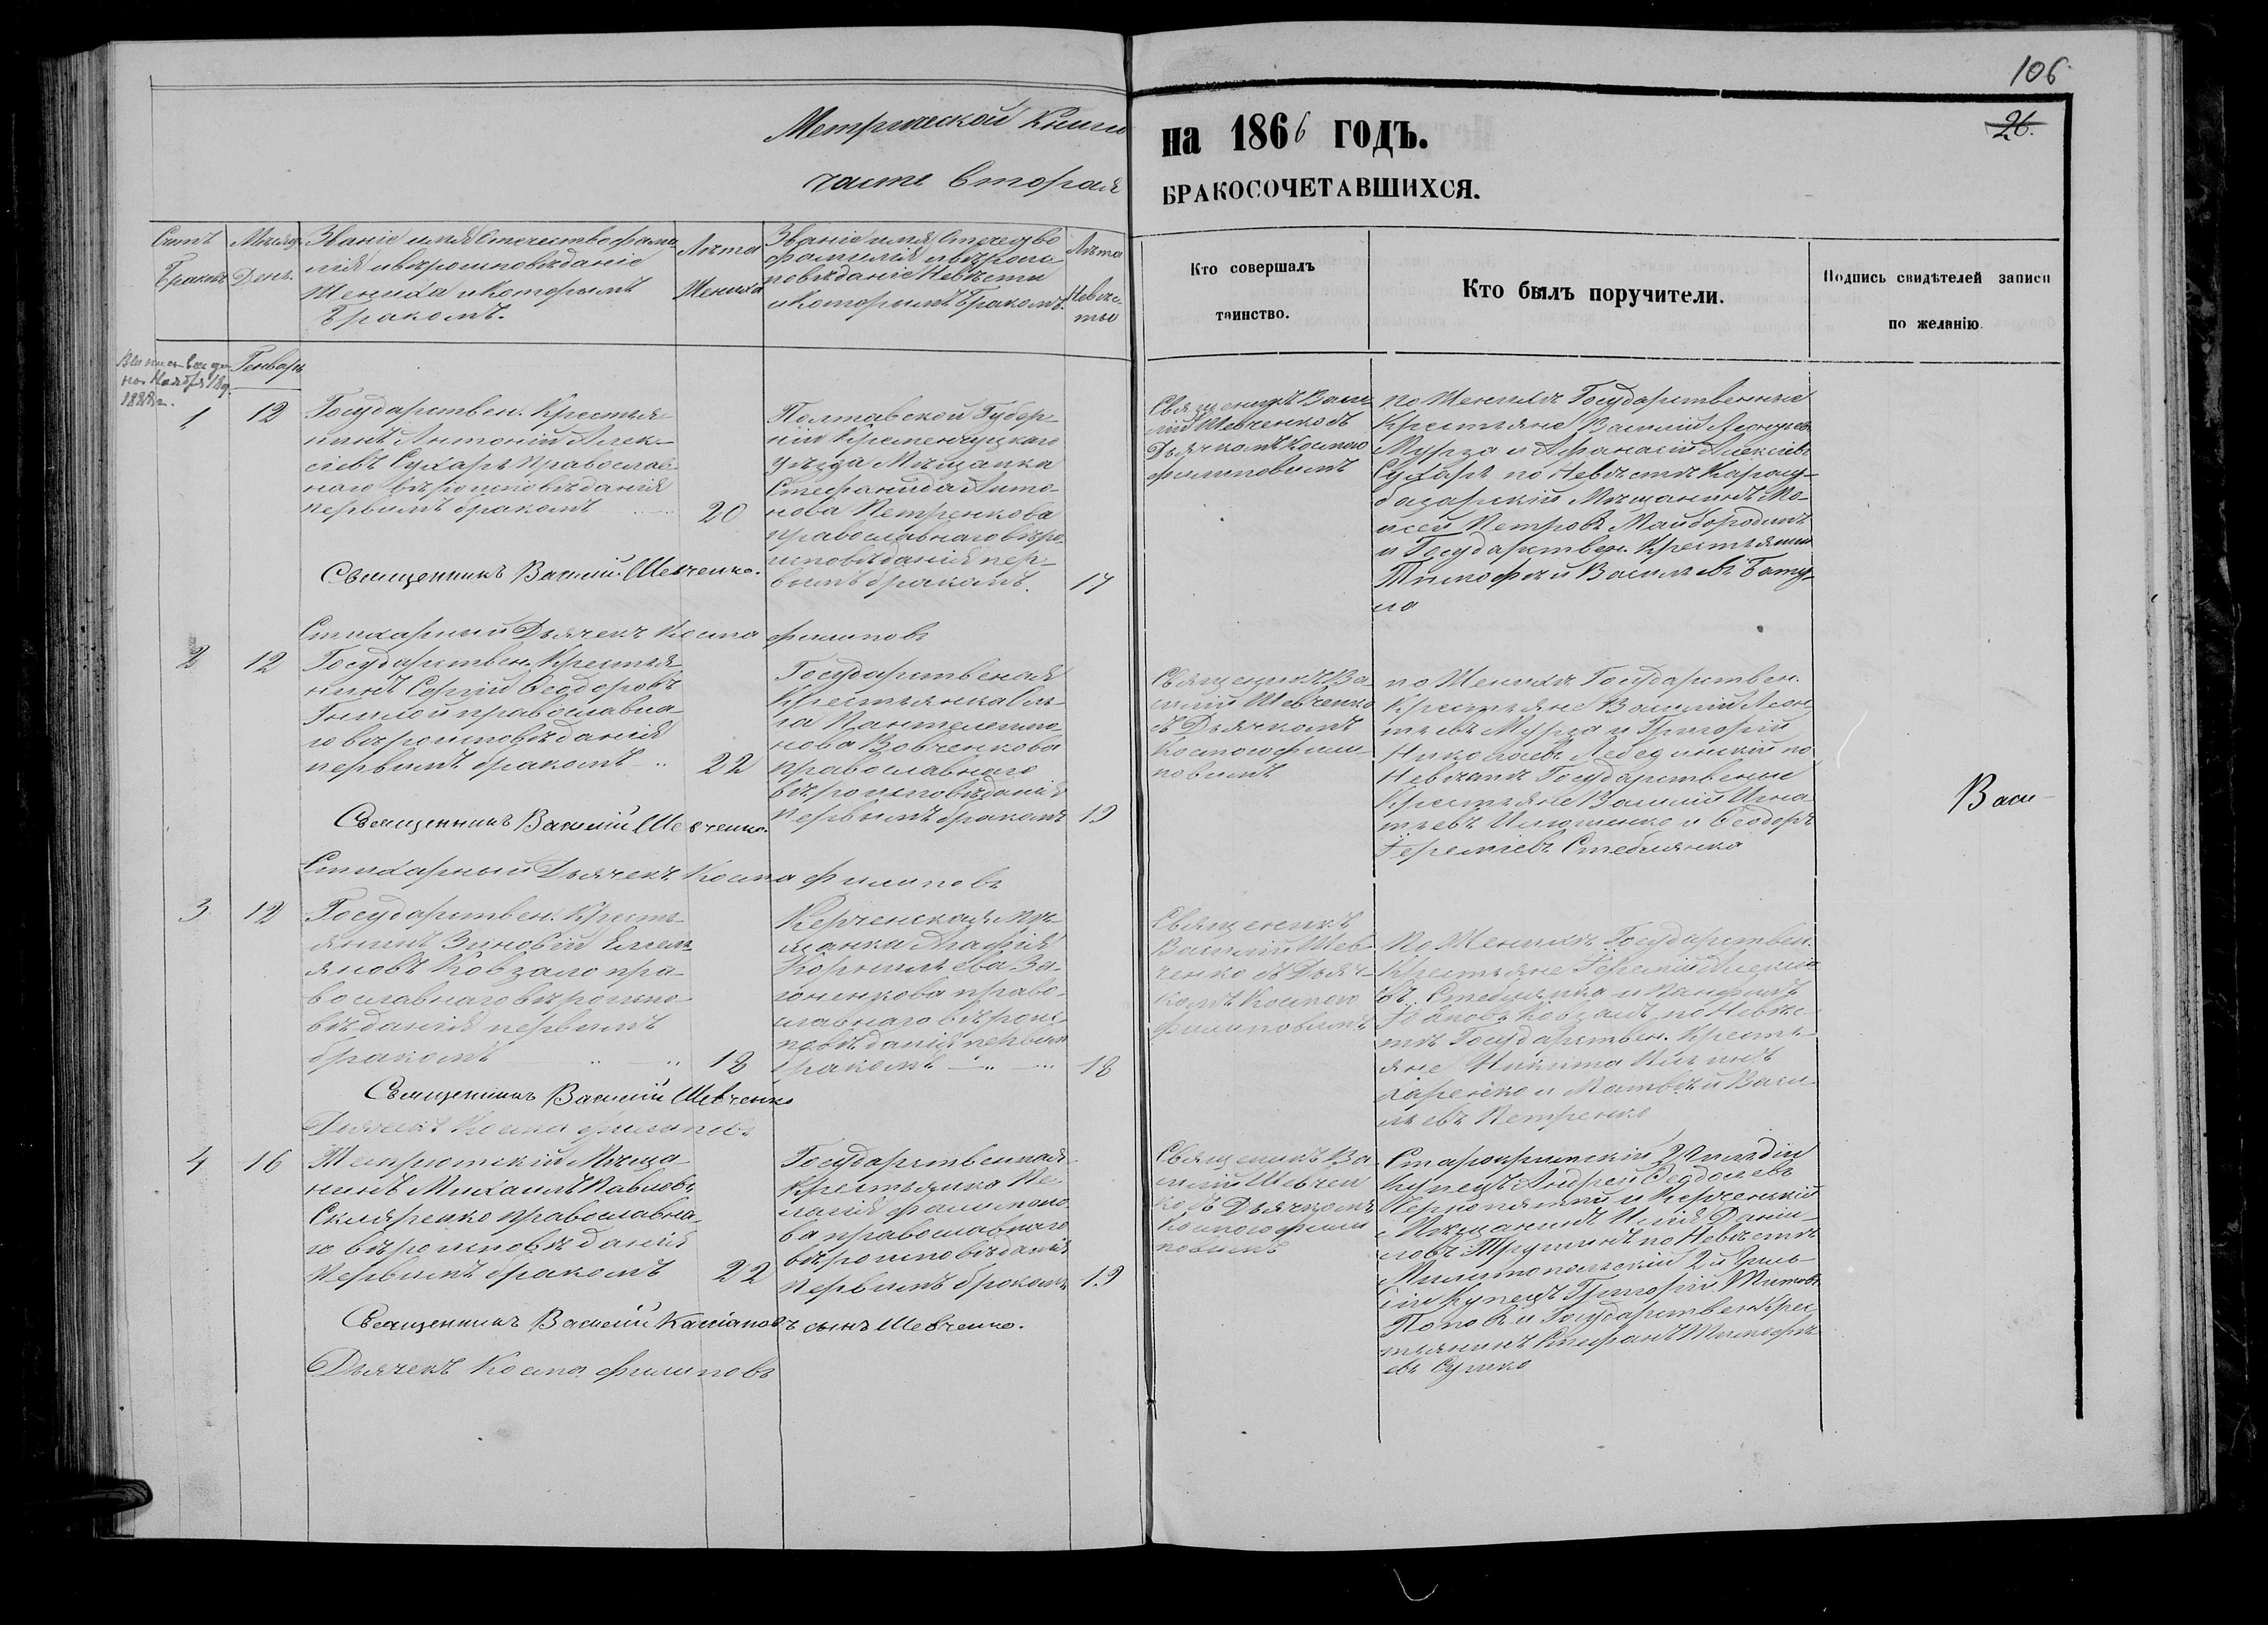 106
26.
Метрической Книги
на 1866 годъ.
часть вторая
БРАКОСОЧЕТАВШИХСЯ.
Счетъ Браковъ
Мѣсяцъ День
Званіе имя Отчество фами-
лія и вѣроисповѣданіе
Жениха и Которымъ
Бракомъ.
Лѣта
Жениха
Званіе имя, Отечество
фамилія и вѣроис-
повѣданіе Невѣсты
и Которымъ Бракомъ.
Лѣта
Невѣс-
ты
Кто совершалъ
таинство.
Кто былъ поручители.
Подпись свидѣтелей записи
по желанію.
Генварь
1
12
Государствен. Крестья-
нинъ Антоній Алек-
сіевъ Сухарь Православ-
наго вѣроисповѣданія
первымъ бракомъ
20
Полтавской Губер-
ніи Кременчуцкаго
уѣзда Мѣщанка
Стефанида Анто-
нова Петренкова
православнаго вѣро-
исповѣданія пер-
вымъ бракомъ.
17
Священникъ Васи-
лій Шевченко съ
Дьячкомъ Космою
Филиповымъ
по Женихѣ Государственные
Крестьяне Василій Леонтьевъ
Мурза и Афанасій Алексіевъ
Сухарь по Невѣстѣ Карасу-
базарскій Мѣщанинъ Мо-
исей Петровъ Майбородинъ
и Государствен. Крестьянин
Тимофей Васильевъ
Священникъ Василій Шевченко.
Стихарный Дьячекъ Косма Филиповъ
2
12
Государствен. Крестья-
нинъ Сергій Феодоровъ
Гнилой православна-
го вѣроисповѣданія
первымъ бракомъ
22
Государственная
Крестьянка Оль-
га Пантелеимо-
нова Вовченкова
православнаго
вѣроисповѣданія
первымъ бракомъ
19
Священникъ Ва-
силій Шевченко
съ Дьячкомъ
Космою Фили-
повымъ
по Женихѣ Государствен.
Крестьяне Василій Леон-
тьевъ Мурза и Григорій
Николаевъ Лебединскій по
Невѣстѣ Государственые
Крестьяне Василій Игна-
тьевъ Илющенко и Феодоръ
Іереміевъ Стеблянко
Васи-
Священникъ Василій Шевченко.
Стихарный Дьячекъ Косма Филиповъ
3
12
Государствен. Кресть-
янинъ Зиновій Емель-
яновъ Ковзало пра-
вославнаго вѣроиспо-
вѣданія первымъ
бракомъ
18
Керченская мѣ-
щанка Агафія
Корнильева За-
православнаго вѣроис-
повѣданія первым
бракомъ
18
Священикъ
Василій Шев-
ченко съ Дьяч-
комъ Космою
Филиповымъ
по Женихѣ Государствен.
Крестьяне Іеремій Алексіе-
въ Стеблянко и Панфилъ
Ковзалъ, по Невѣс-
тѣ Государствен. Кресть-
яне Никита Ильинъ
Харенко и Матвѣй Васи-
льевъ Петренко
Священникъ Василій Шевченко
Дьячекъ Косма Филиповъ
4
16
Темрютскій Мѣща-
нинъ Михаилъ Павловъ
Скляренко православна-
го вѣроисповѣданія
Первымъ бракомъ
22
Государственная
Крестьянка Пе-
лагія Филимоно-
ва православнаго
вѣроисповѣданія
первымъ бракомъ
19
Священикъ Ва-
силій Шевчен-
ко съ Дьячкомъ
Космою Фили-
повымъ
Старокрымскій 2 Гильдіи
Купецъ Андрей Феодосіевъ
и Керченскій
Мѣщанинъ Илія Дани-
ловъ по Невѣстѣ
Милитопольскій 2й Гиль-
діи Купецъ Григорій Титовъ
Поповъ и Государствен Крес-
тьянинъ Стефанъ Тимофѣ-
евъ Сушко
Священникъ Василій Кассіановъ сынъ Шевченко.
Дьячекъ Косма Филиповъ